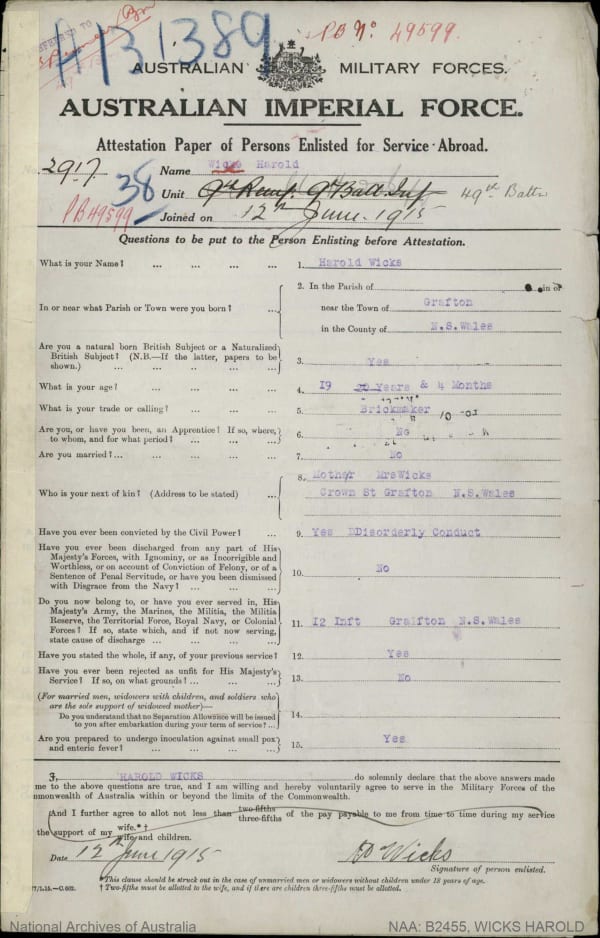 H131389
PB No. 49599
AUSTRALIAN MILITARY FORCES.
AUSTRALIAN IMPERIAL FORCE.
Attestation Paper of Persons Enlisted for Service Abroad.
No. 2917 Name Wicks Harold
38 Unit 9th Reinf. 9th Batt. Inf 49th Battn
PB49599 Joined on 12th June 1915
Questions to be put to the Person Enlisting before Attestation.
What is your Name? ... ... ... ... 1. Harold Wicks
In or near what Parish or Town were you born? ... 2. In the Parish of in or
near the Town of Grafton
in the County of N.S.Wales
Are you a natural born British Subject or a Naturalized
British Subject? (N.B.—If the latter, papers to be
shown.) ... ... ... ... 3. Yes
What is your age? ... ... ... ... 4. 19 20 Years & 4 Months
What is your trade or calling? ... ... ... 5. Brickmaker
Are you, or have you been, an Apprentice? If so, where,
to whom, and for what period? ... ... ... 6. No
Are you married?... ... ... ... ... 7. No
Who is your next of kin? (Address to be stated) ... 8. Mother Mrs Wicks
Crown St Grafton N.S.Wales
Have you ever been convicted by the Civil Power? ... 9. Yes DDisorderly Conduct
Have you ever been discharged from any part of His
Majesty's Forces, with Ignominy, or as Incorrigible and
Worthless, or on account of Conviction of Felony, or of a
Sentence of Penal Servitude, or have you been dismissed
with Disgrace from the Navy? ... ... ... 10. No
Do you now belong to, or have you ever served in, His
Majesty's Army, the Marines, the Militia, the Militia
Reserve, the Territorial Force, Royal Navy, or Colonial
Forces? If so, state which, and if not now serving,
state cause of discharge ... ... ... 11. I2 Inft Gralfton N.S.Wales
Have you stated the whole, if any, of your previous service? 12. Yes
Have you ever been rejected as unfit for His Majesty's
Service? If so, on what grounds? ... ... ... 13. No
(For married men, widowers with children, and soldiers who
are the sole support of widowed mother)—
Do you understand that no Separation Allowance will be issued
to you after embarkation during your term of service? ... 14.
Are you prepared to undergo inoculation against small pox
and enteric fever? ... ... ... ... 15. Yes
I, HAROLD WICKS do solemnly declare that the above answers made
me to the above questions are true, and I am willing and hereby voluntarily agree to serve in the Military Forces of the
mmonwealth of Australia within or beyond the limits of the Commonwealth.
And I further agree to allot not less than two-fifths three-fifths of the pay payable to me from time to time during my service
the support of my wife.*† wife and children.
Date 12th June 1915 H Wicks
Signature of person enlisted.
*This clause should be struck out in the case of unmarried men or widowers without children under 18 years of age.
† Two-fifths must be allotted to the wife, and if there are children three-fifths must be allotted.
National Archives of Australia NAA: B2455, WICKS HAROLD